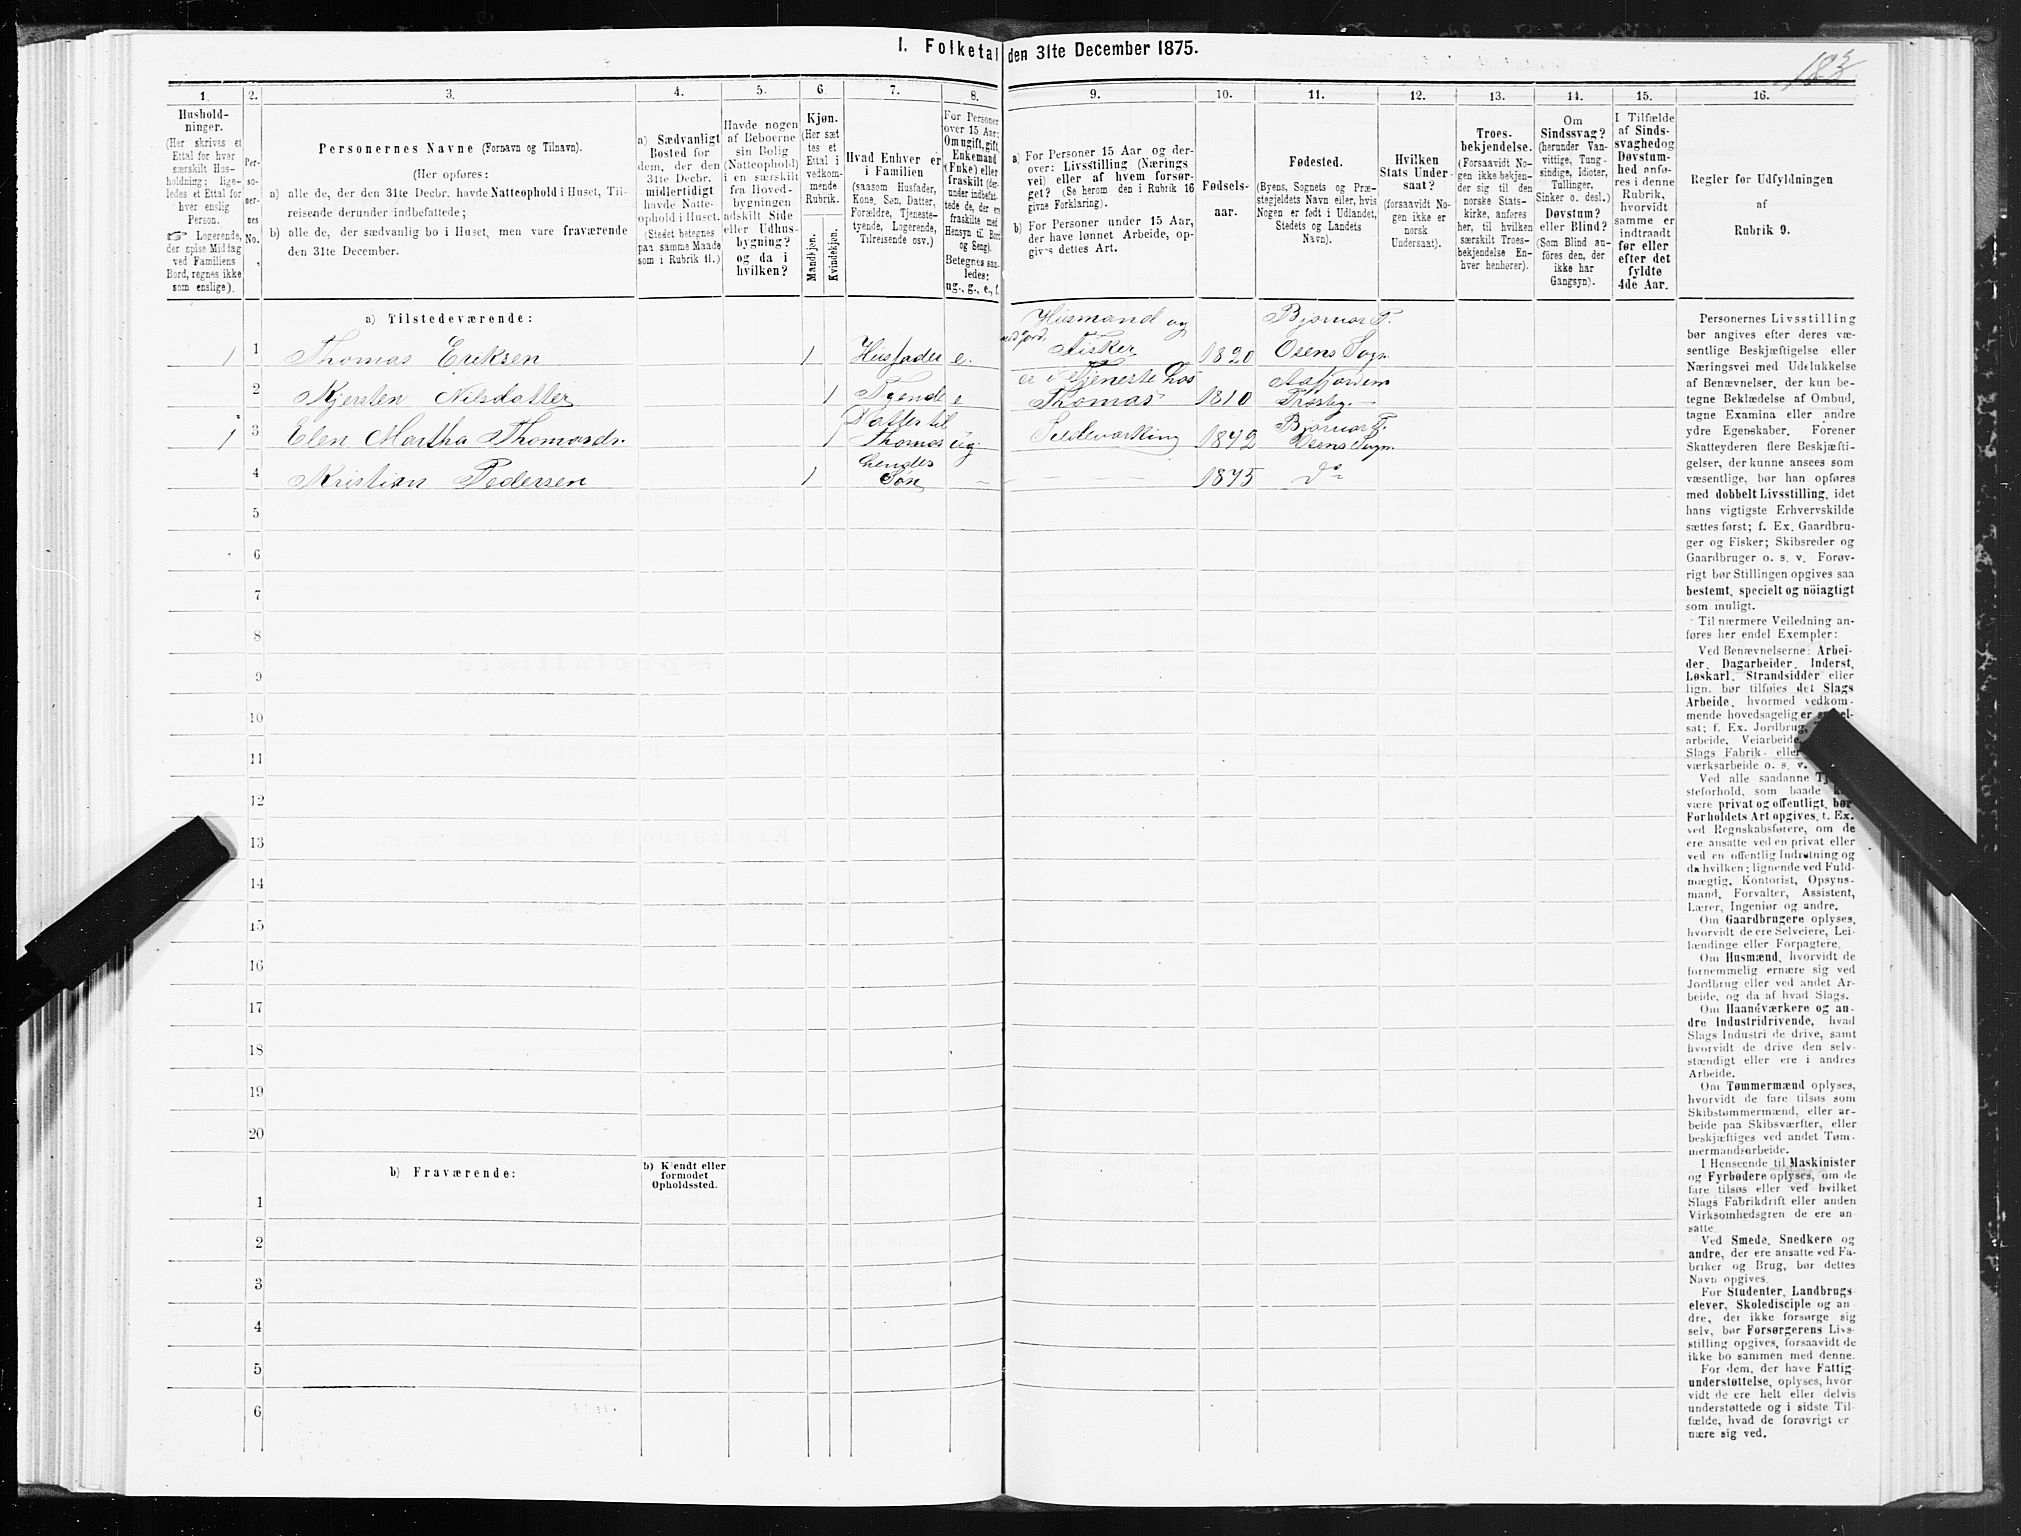 I. Folketal den 31te December 1875.
183
1. 2. 3. 4. 5. 6. 7. 8. 9. 10. 11. 12. 13. 14. 15. 16.
Hushold-
ninger.
(Her skrives et
Ettal for hver
særskilt Hus-
holdning; lige-
ledes et Ettal for
hver enslig
Person.
☞ Logerende,
der spise Middag
ved Familiens
Bord, regnes ikke
som enslige).
Per-
so-
ner-
nes
No.
Personernes Navne (Fornavn og Tilnavn).
(Her opføres:
a) alle de, der den 31te Decbr. havde Natteophold i Huset, Til-
reisende derunder indbefattede;
b) alle de, der sædvanlig bo i Huset, men vare fraværende
den 31te December.
a) Sædvanligt
Bosted for
dem, der den
31te Decbr.
midlertidigt
havde Natte-
ophold i Huset.
(Stedet betegnes
paa samme Maade
som i Rubrik 11.)
Havde nogen
af Beboerne
sin Bolig
(Natteophold)
i en særskilt
fra Hoved-
bygningen
adskilt Side
eller Udhus-
bygning?
og da i
hvilken?
Kjøn.
(Her sæt
tes et
Ettal i
vedkom-
mende
Rubrik.
Mandkjøn.
Kvindekjøn.
Hvad Enhver er
i Familien
(saasom Husfader,
Kone, Søn, Datter,
Forældre, Tjeneste-
tyende, Logerende,
Tilreisende osv.)
For Personer
over 15 Aar:
Om ugift, gift,
Enkemand
(Enke) eller
fraskilt (der-
under indbefat-
tede de, der er
fraskilte med
Hensyn til Bord
og Seng).
Betegnes saa-
ledes:
ug., g., e., f.
a) For Personer 15 Aar og der-
over: Livsstilling (Nærings-
vei) eller af hvem forsør-
get? (Se herom den i Rubrik 16
givne Forklaring).
b) For Personer under 15 Aar,
der have lønnet Arbeide, op-
gives dettes Art.
Fødsels-
aar.
Fødested.
(Byens, Sognets og Præ-
stegjeldets Navn eller, hvis
Nogen er født i Udlandet,
Stedets og Landets
Navn).
Hvilken
Stats Under-
saat?
(forsaavidt No-
gen ikke er
norsk
Undersaat).
Troes-
bekjendelse.
(Forsaavidt No-
gen ikke bekjen-
der sig til den
norske Stats-
kirke, anføres
her, til hvilken
særskilt Troes-
bekjendelse En-
hver henhører).
Om
Sindssvag?
(herunder Van-
vittige, Tung-
sindige, Idioter,
Tullinger,
Sinker o. desl.)
Døvstum?
eller Blind?
(Som Blind an-
føres den, der
ikke har
Gangsyn).
I Tilfælde
af Sinds-
svaghed og
Døvstum-
hed anfø-
res i denne
Rubrik,
hvorvidt
samme er
indtraadt
før eller
efter det
fyldte
4de Aar.
Regler for Udfyldningen
af
Rubrik 9.
a) Tilstedeværende:
1 1 Thomas Eriksen 1 Husfader e. Husmand og Fisker med Jord. 1820 Bjørnør P. Osens Sogn
2 Kjersten Nilsdatter 1 Tyende e er i Tjeneste hos Thomas 1810 Aafjorden
1 3 Elen Martha Thomasdr. 1 Datter til Thomas ug. 1842 Bjørnør P. Osens Sogn
4 Kristian Pedersen 1 hendes Søn – – – – – 1875 do
5
6
7
8
9
10
11
12
13
14
15
16
17
18
19
20
b) Fraværende:
b) Kjendt eller
formodet
Opholdssted.
1
2
3
4
5
6
Personernes Livsstilling
bør angives efter deres væ-
sentlige Beskjæftigelse eller
Næringsvei med Udelukkelse
af Benævnelser, der kun be-
tegne Beklædelse af Ombud,
tagne Examina eller andre
ydre Egenskaber. Forener
Skatteyderen flere Beskjæfti-
gelser, der kunne ansees som
væsentlige, bør han opføres
med dobbelt Livsstilling, idet
hans vigtigste Erhvervskilde
sættes først; f. Ex. Gaardbru-
ger og Fisker; Skibsreder og
Gaardbruger o. s. v. Forøv-
rigt bør Stillingen opgives saa
bestemt, specielt og nöiagtigt
som muligt.
Til nærmere Veiledning an-
føres her endel Exempler:
Ved Benævnelserne: Arbei-
der, Dagarbeider, Inderst,
Løskarl, Strandsidder eller
lign. bør tilføies det Slags
Arbeide, hvormed vedkom-
mende hovedsagelig er
sat; f. Ex. Jordbrug,
arbeide, Veiarbeide,
Slags Fabrik- eller
værksarbeide o. s. v.
Ved alle saadanne
steforhold, som baade
være privat og offentligt, bør
Forholdets Art opgives, t. Ex.
ved Regnskabsførere, om de
ere ansatte ved en privat eller
ved en offentlig Indretning og
da hvilken; lignende ved Fuld-
mægtig, Kontorist, Opsyns-
mand, Forvalter, Assistent,
Lærer, Ingeniør og andre.
Om Gaardbrugere oplyses,
hvorvidt de ere Selveiere, Lei-
lændinge eller Forpagtere.
Om Husmænd, hvorvidt de
fornemmelig ernære sig ved
Jordbrug eller ved andet Ar-
beide, og da af hvad Slags.
Om Haandværkere og an-
dre Industridrivende, hvad
Slags Industri de drive, samt
hvorvidt de drive den selv-
stændigt eller ere i andres
Arbeide.
Om Tømmermænd oplyses,
hvorvidt de fare tilsøs som
Skibstømmermænd, eller ar-
beide paa Skibsværfter, eller
beskjæftiges ved andet Tøm-
mermandsarbeide.
I Henseende til Maskinister
og Fyrbødere oplyses, om de
fare tilsøs eller ved hvilket
Slags Fabrikdrift eller anden
Virksomhedsgren de ere an-
satte.
Ved Smede, Snedkere og
andre, der ere ansatte ved Fa-
briker og Brug, bør dettes
Navn opgives.
For Studenter, Landbrugs-
elever, Skoledisciple og an-
dre, der ikke forsørge sig
selv, bør Forsørgerens Livs-
stilling opgives, forsaavidt de
ikke bo sammen med denne.
For dem, der have Fattig-
understøttelse, oplyses, hvor-
vidt de ere helt eller delvis
understøttede og i sidste Til-
fælde, hvad de forøvrigt er-
nære sig ved.